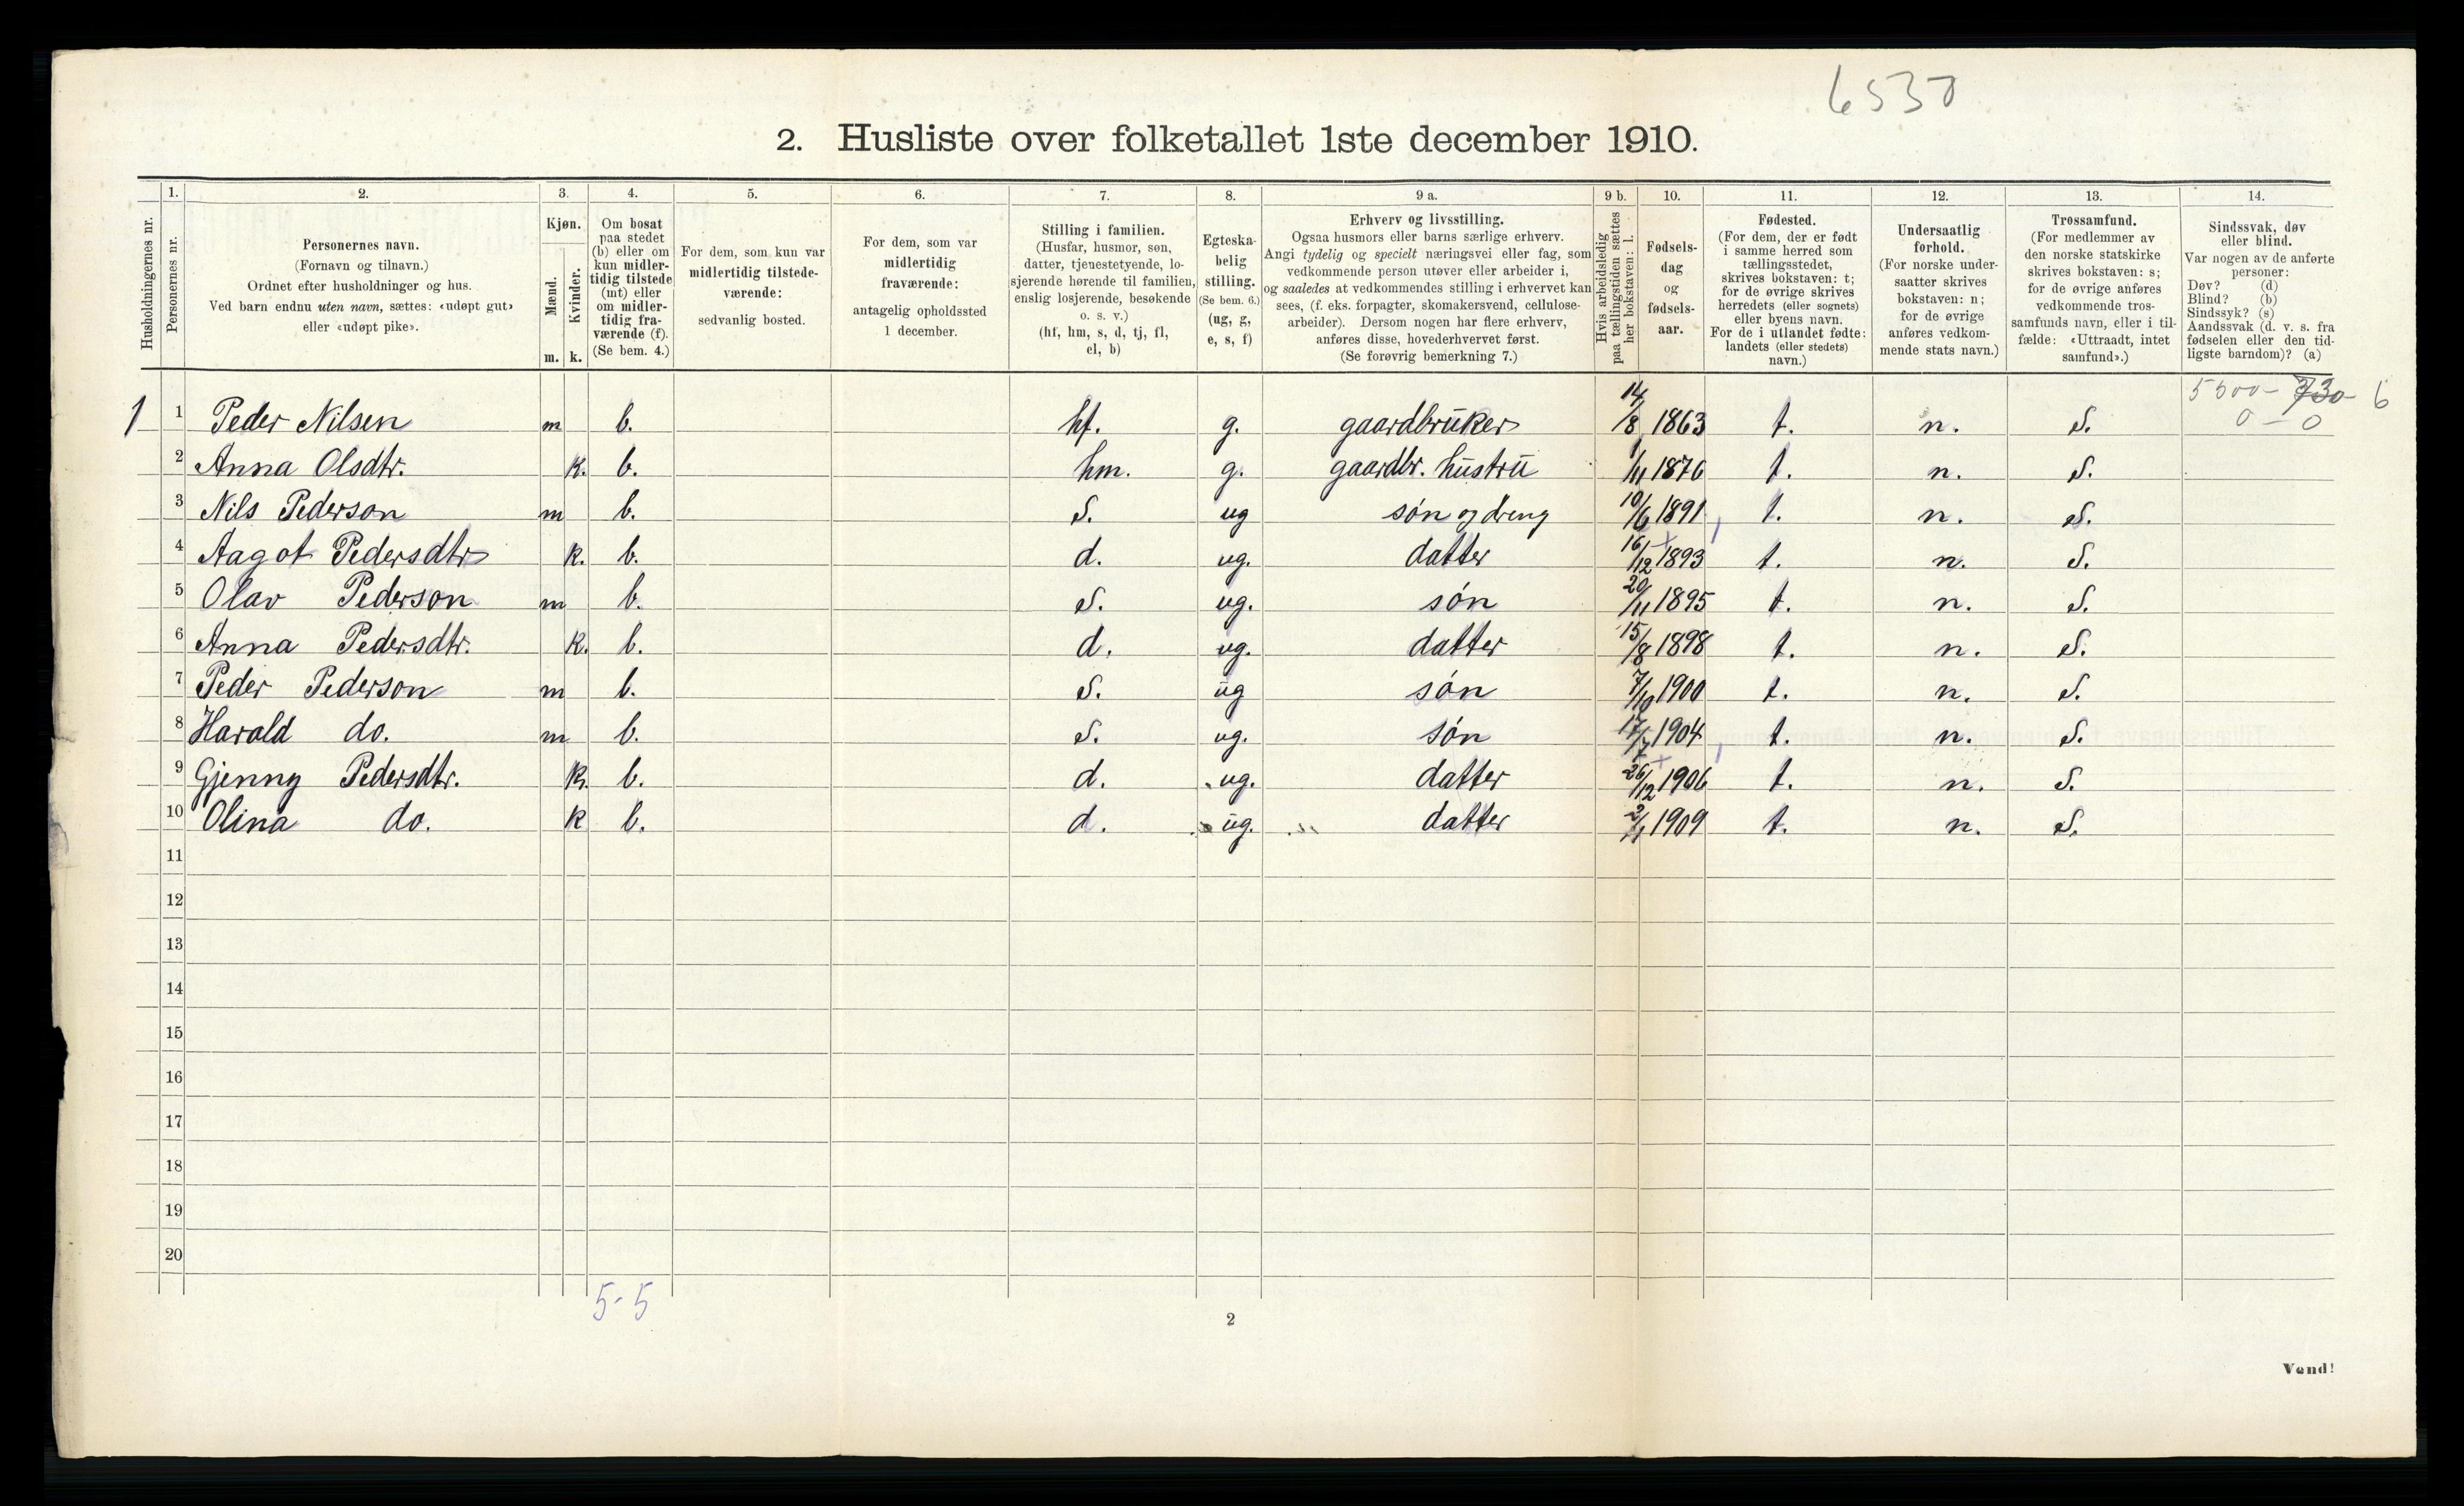 6530
2. Husliste over folketallet 1ste december 1910.
Husholdningernes nr.
1. Personernes nr.
2. Personernes navn.
(Fornavn og tilnavn.)
Ordnet efter husholdninger og hus.
Ved barn endnu uten navn, sættes: «udøpt gut»
eller «udøpt pike».
3. Kjøn.
Mænd. m.
Kvinder. k.
4. Om bosat
paa stedet
(b) eller om
kun midler-
tidig tilstede
(mt) eller
om midler-
tidig fra-
værende (f).
(Se bem. 4.)
5. For dem, som kun var
midlertidig tilstede-
værende:
sedvanlig bosted.
6. For dem, som var
midlertidig
fraværende:
antagelig opholdssted
1 december.
7. Stilling i familien.
(Husfar, husmor, søn,
datter, tjenestetyende, lo-
sjerende hørende til familien,
enslig losjerende, besøkende
o. s. v.)
(hf, hm, s, d, tj, fl,
el, b)
8. Egteska-
belig
stilling.
(Se bem. 6.)
(ug, g,
e, s, f)
9 a. Erhverv og livsstilling.
Ogsaa husmors eller barns særlige erhverv.
Angi tydelig og specielt næringsvei eller fag, som
vedkommende person utøver eller arbeider i,
og saaledes at vedkommendes stilling i erhvervet kan
sees, (f. eks. forpagter, skomakersvend, cellulose-
arbeider). Dersom nogen har flere erhverv,
anføres disse, hovederhvervet først.
(Se forøvrig bemerkning 7.)
9 b. Hvis arbeidsledig
paa tællingstiden sættes
her bokstaven: l.
10. Fødsels-
dag
og
fødsels-
aar.
11. Fødested.
(For dem, der er født
i samme herred som
tællingsstedet,
skrives bokstaven: t;
for de øvrige skrives
herredets (eller sognets)
eller byens navn.
For de i utlandet fødte:
landets (eller stedets)
navn.)
12. Undersaatlig
forhold.
(For norske under-
saatter skrives
bokstaven: n;
for de øvrige
anføres vedkom-
mende stats navn.)
13. Trossamfund.
(For medlemmer av
den norske statskirke
skrives bokstaven: s;
for de øvrige anføres
vedkommende tros-
samfunds navn, eller i til-
fælde: «Uttraadt, intet
samfund».)
14. Sindssvak, døv
eller blind.
Var nogen av de anførte
personer:
Døv? (d)
Blind? (b)
Sindssyk? (s)
Aandssvak (d. v. s. fra
fødselen eller den tid-
ligste barndom)? (a)
0 - 0
1 1 Peder Nilsen m b. hf. g. gaardbruker 14/8 1863 t. n. S.
2 Anna Olsdtr. k. b. hm. g. gaardbr. hustru 1/11 1876 t. n. S.
3 Nils Pederson m b. S. ug søn og dreng 10/6 1891 t. n. S.
4 Aagot Pedersdtr k. b. d. ug. datter 16/12 1893 t. n. S.
5 Olav Pederson m b. S. ug. søn 20/11 1895 t. n. S.
6 Anna Pedersdtr. k. b. d. ug. datter 15/8 1898 t. n. S.
7 Peder Pederson m b. S. ug søn 7/10 1900 t. n. S.
8 Harald do. m b. S. ug. søn 17/7 1904 t. n. S.
9 Gjenny Pedersdtr. k. b. d. ug. datter 26/12 1906 t. n. S.
10 Olina do. k b. d. ug. datter 1909 t. n. S.
11
12
13
14
15
16
17
18
19
20
5-5
2
Vend!